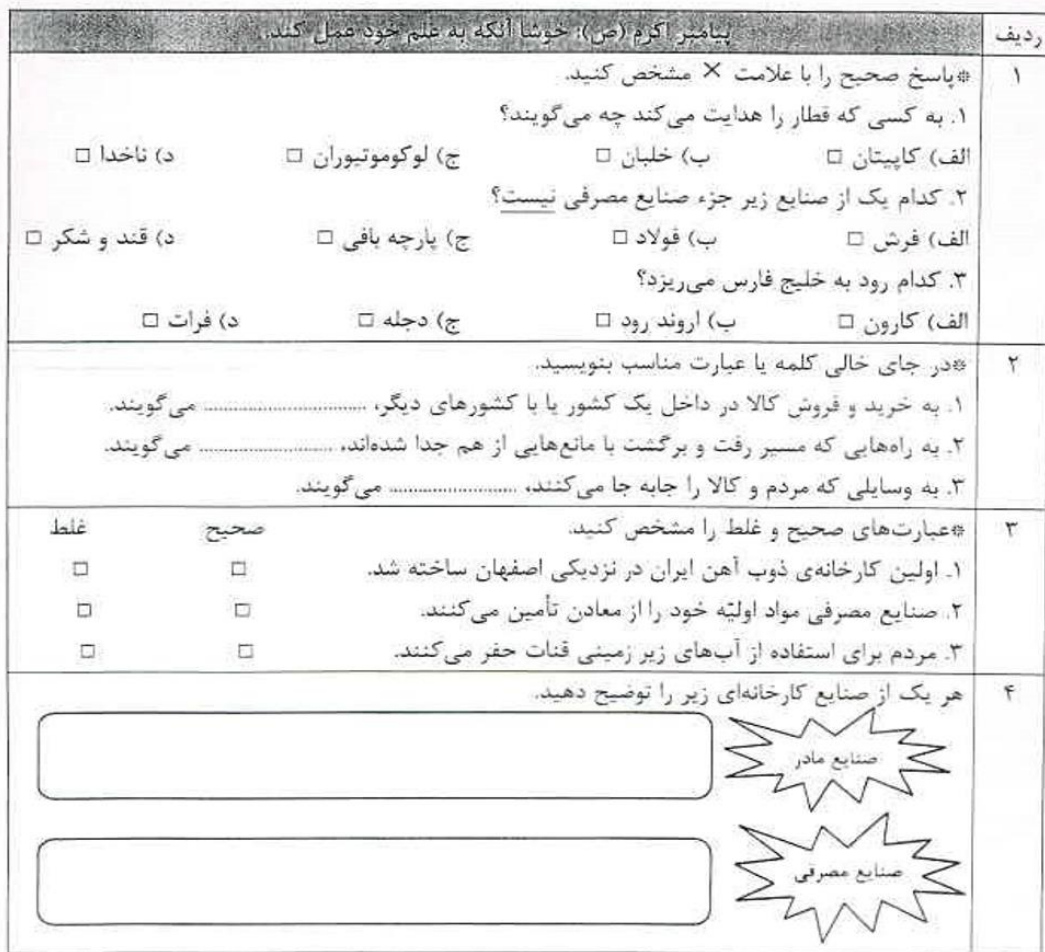 ردیف
پیامبر اکرم (ص): خوشا آنکه به علم خود عمل کند.
۱
*پاسخ صحیح را با علامت × مشخص کنید.
۱. به کسی که قطار را هدایت می‌کند چه می‌گویند؟
الف) کاپیتان □ ب) خلبان □ ج) لوکوموتیوران □ د) ناخدا □
۲. کدام یک از صنایع زیر جزء صنایع مصرفی نیست؟
الف) فرش □ ب) فولاد □ ج) پارچه بافی □ د) قند و شکر □
۳. کدام رود به خلیج فارس می‌ریزد؟
الف) کارون □ ب) اروند رود □ ج) دجله □ د) فرات □
۲
*در جای خالی کلمه یا عبارت مناسب بنویسید.
۱. به خرید و فروش کالا در داخل یک کشور یا با کشورهای دیگر، .................... می‌گویند.
۲. به راه‌هایی که مسیر رفت و برگشت با مانع‌هایی از هم جدا شده‌اند، .................... می‌گویند.
۳. به وسایلی که مردم و کالا را جابه جا می‌کنند، .................... می‌گویند.
۳
*عبارت‌های صحیح و غلط را مشخص کنید. صحیح غلط
۱. اولین کارخانه‌ی ذوب آهن ایران در نزدیکی اصفهان ساخته شد. □ □
۲. صنایع مصرفی مواد اولیّه خود را از معادن تأمین می‌کنند. □ □
۳. مردم برای استفاده از آب‌های زیر زمینی قنات حفر می‌کنند. □ □
۴
هر یک از صنایع کارخانه‌ای زیر را توضیح دهید.
صنایع مادر
صنایع مصرفی